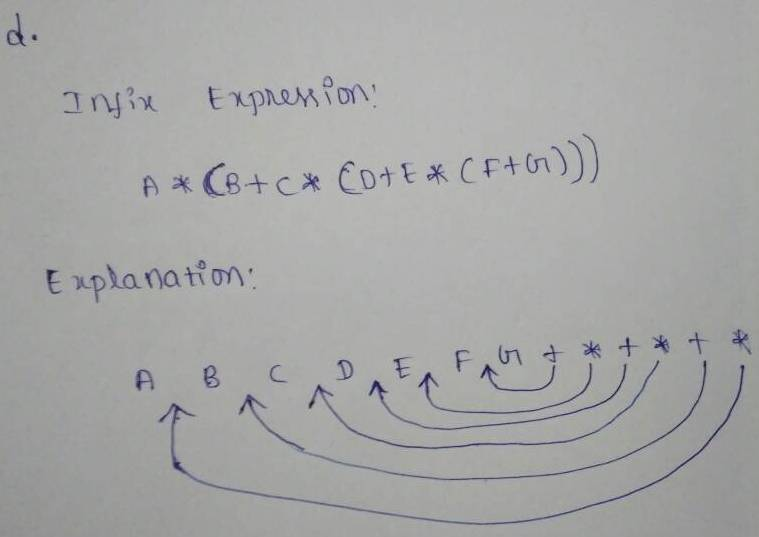 d.
Infix Expression:
A * (B+C* (D+E * (F+G)))
Explanation:
A B C D E F G + * + * + *